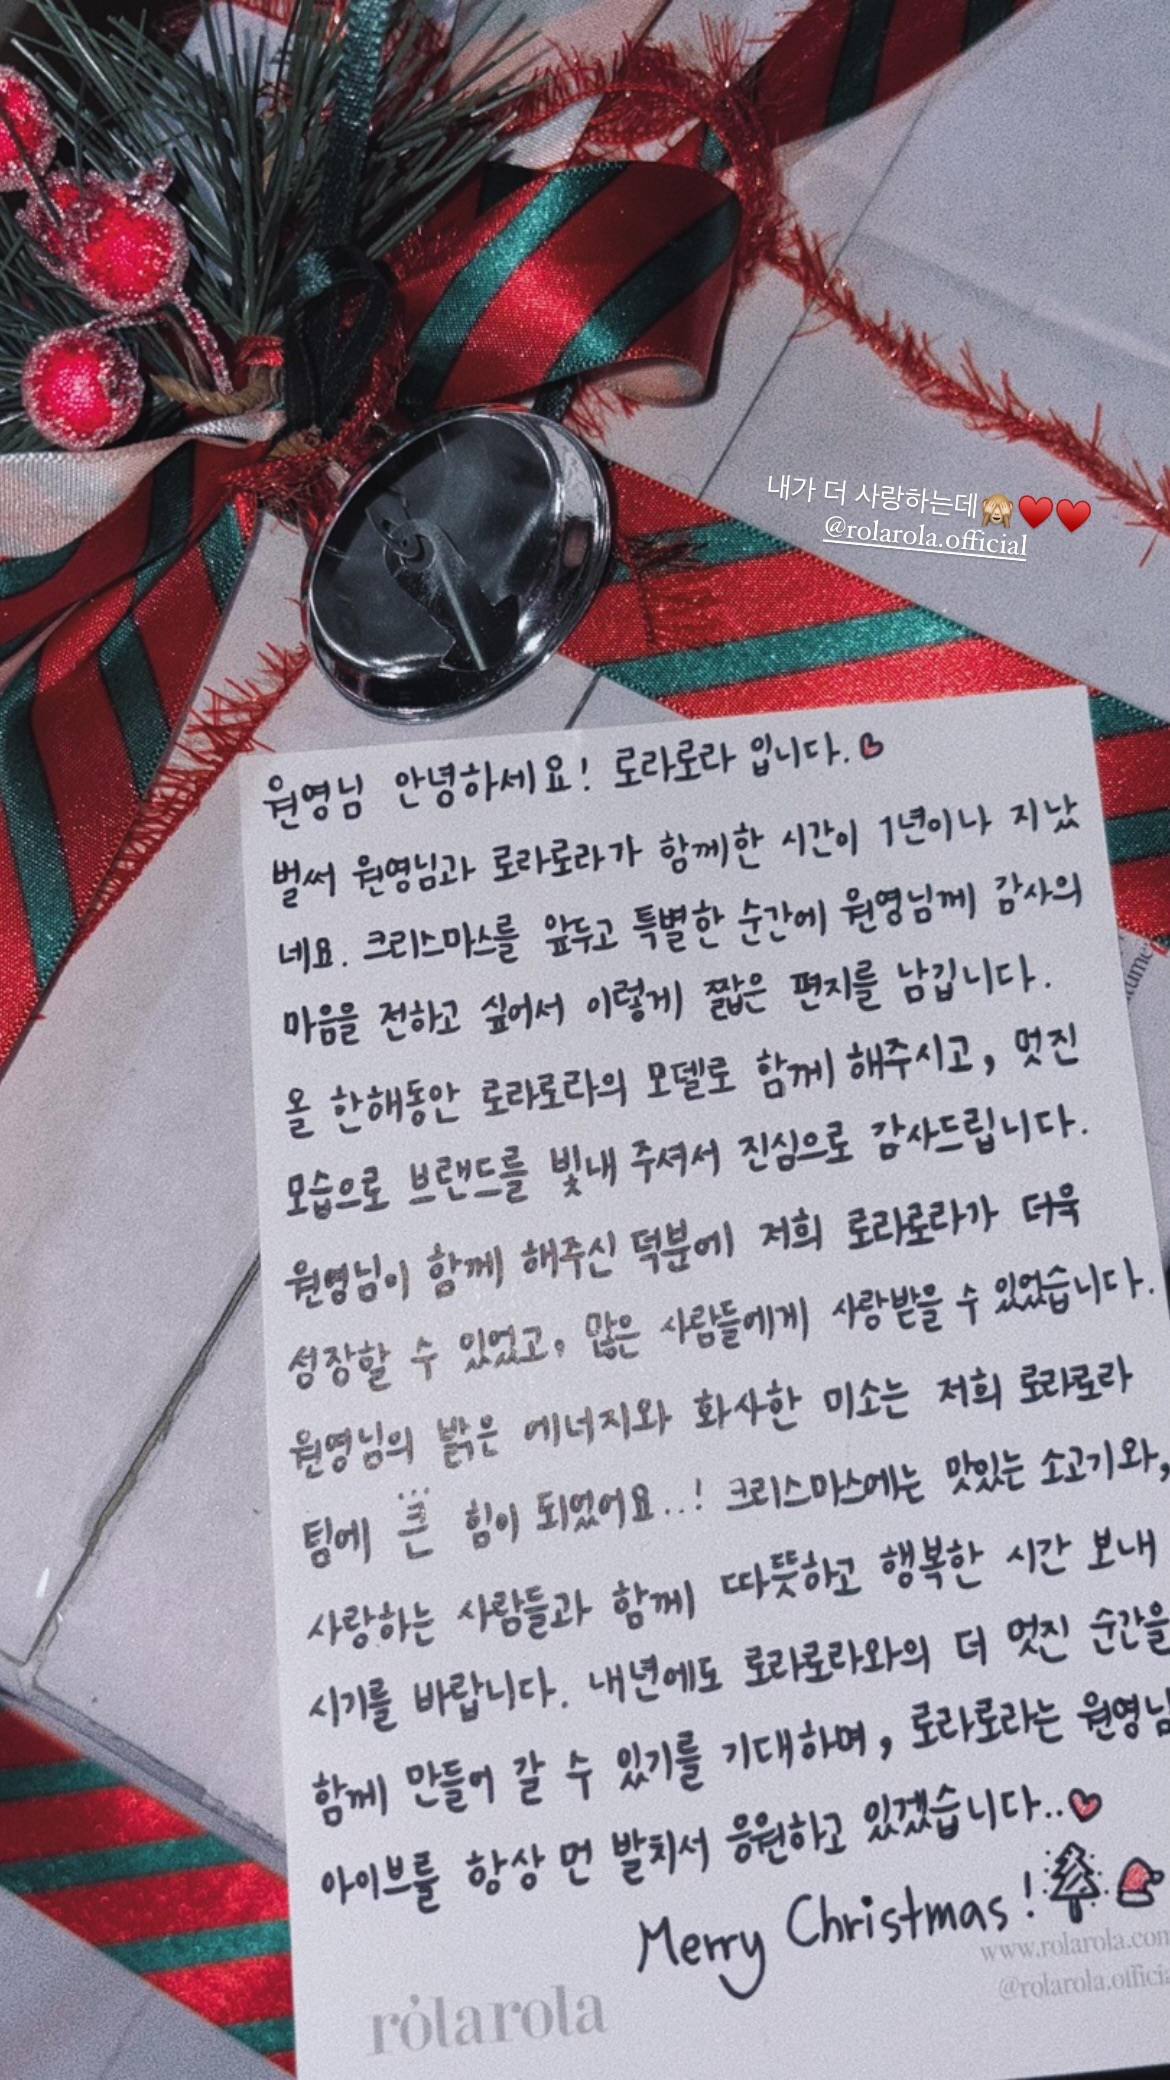 내가 더 사랑하는데🙈♥️♥️
@rolarola.official
원영님 안녕하세요! 로라로라 입니다.♡
벌써 원영님과 로라로라가 함께한 시간이 1년이나 지났
네요. 크리스마스를 앞두고 특별한 순간에 원영님께 감사의
마음을 전하고 싶어서 이렇게 짧은 편지를 남깁니다.
올 한해동안 로라로라의 모델로 함께 해주시고, 멋진
모습으로 브랜드를 빛내 주셔서 진심으로 감사드립니다.
원영님이 함께 해주신 덕분에 저희 로라로라가 더욱
성장할 수 있었고, 많은 사람들에게 사랑받을 수 있었습니다.
원영님의 밝은 에너지와 화사한 미소는 저희 로라로라
팀에 큰 힘이 되었어요..! 크리스마스에는 맛있는 소고기와,
사랑하는 사람들과 함께 따뜻하고 행복한 시간 보내
시기를 바랍니다. 내년에도 로라로라와의 더 멋진 순간을
함께 만들어 갈 수 있기를 기대하며, 로라로라는 원영님
아이브를 항상 먼 발치서 응원하고 있겠습니다..♡
Merry Christmas!
www.rolarola.com
@rolarola.official
rolarola